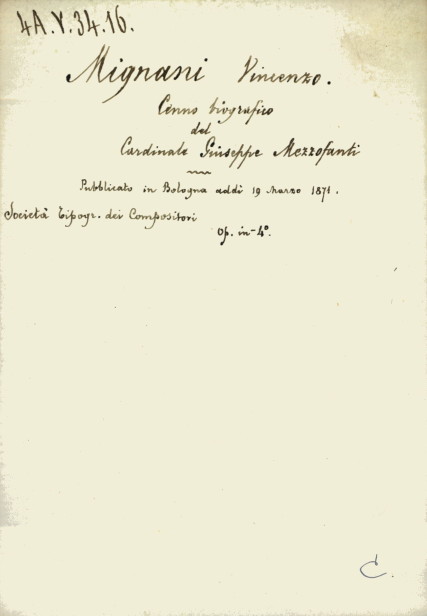 4A.Y.34.16.
Mignani Vincenzo.
Cenno biografico
del
Cardinale Giuseppe Mezzofanti
Pubblicato in Bologna addì 19 Marzo 1871.
Società Tipogr. dei Compositori
Op. in-4º.
C.